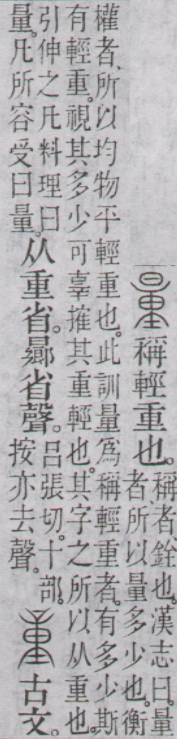 量
稱輕重也。
稱者、銓也。漢志曰。量
者所以量多少也。衡
權者、所以均物平輕重也。此訓量爲稱輕重者。有多少斯
有輕重。視其多少可辜搉其重輕也。其字之所以从重也。
引伸之凡料理曰
量。凡所容受曰量。
从重省。曏省聲。
呂張切。十部。
按亦去聲。
古文。